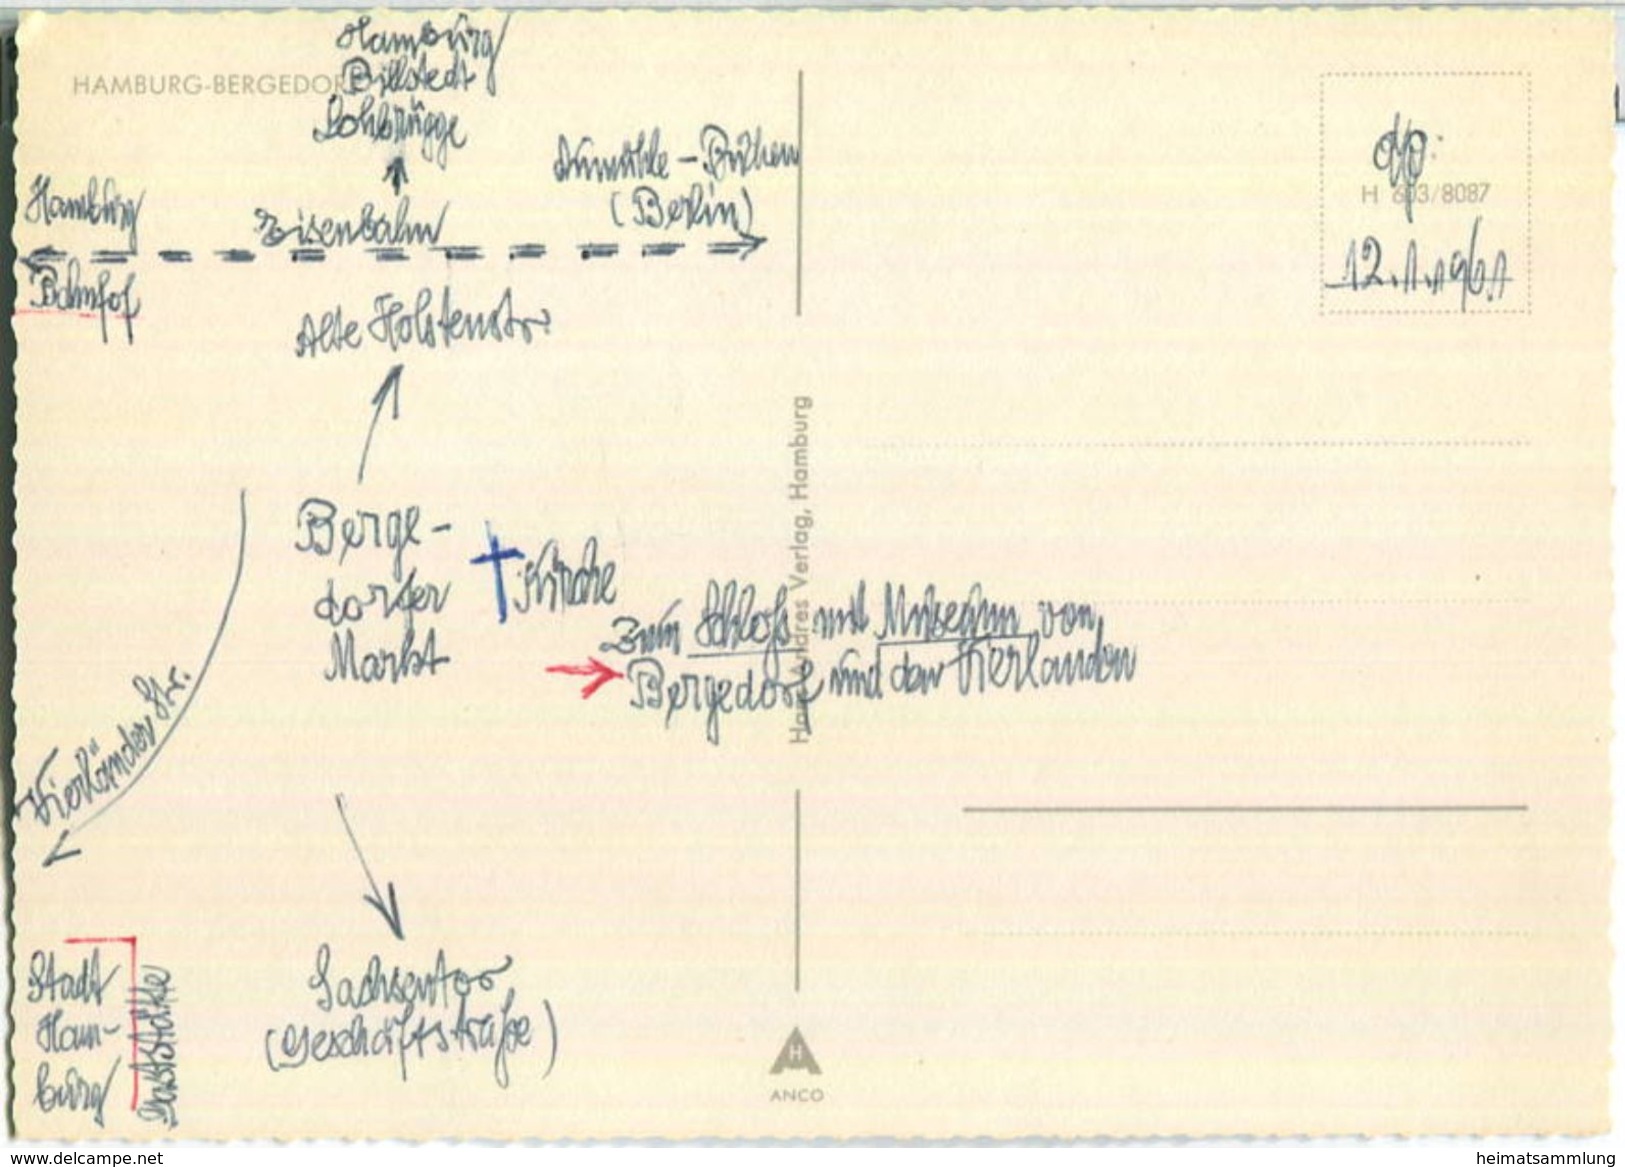 Hamburg
HAMBURG-BERGEDORF
Billstedt
Lohbrügge
Aumühle - Büchen
(Berlin)
Hamburg
Eisenbahn
Bahnhof
H 603/8087
12.1.1961
Alte Holstenstr
Berge-
dorfer
Markt
Kirche
Zum Schloß mit Museum von
Bergedorf und den Vierlanden
Vierländer Str.
Hans Andres Verlag, Hamburg
Stadt
Ham-
burg
Gaststätte
Sachsentor
(Geschäftstraße)
H
ANCO
www.delcampe.net
heimatsammlung